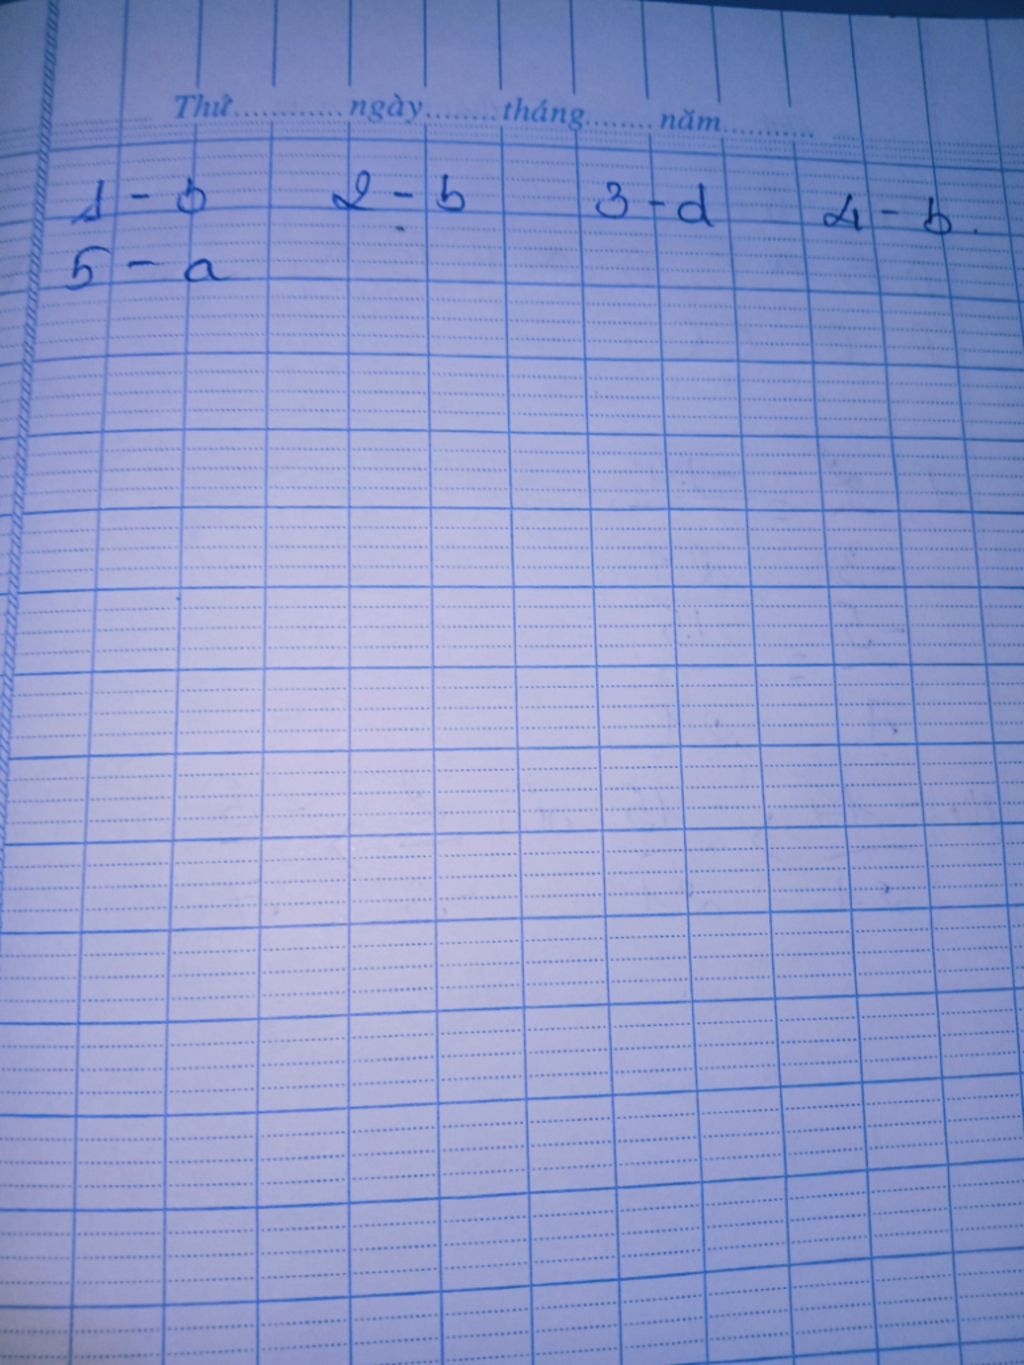 Thứ............ngày........tháng........năm..........
1 - b 2 - b 3 - d 4 - b.
5 - a